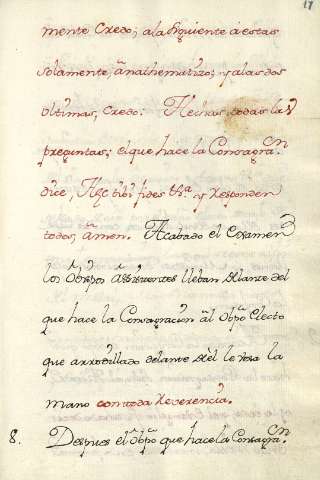 17
mente Credo; ala siguiente áestas
solamente, anathematizo; y alas dos
vltimas, Credo. Hechas todas las
preguntas; el que hace la Consagra.cn
dice, Hæc tibi fides th.a y Responden
todos, amen. Acabado el Examen
los Obispos Assistentes lleban delante del
que hace la Consagracion al Obpo Electo
que arrodillado delante del le vesa la
mano con toda Reverencia.
8. Despues el obpo que hace la Consagra.cn